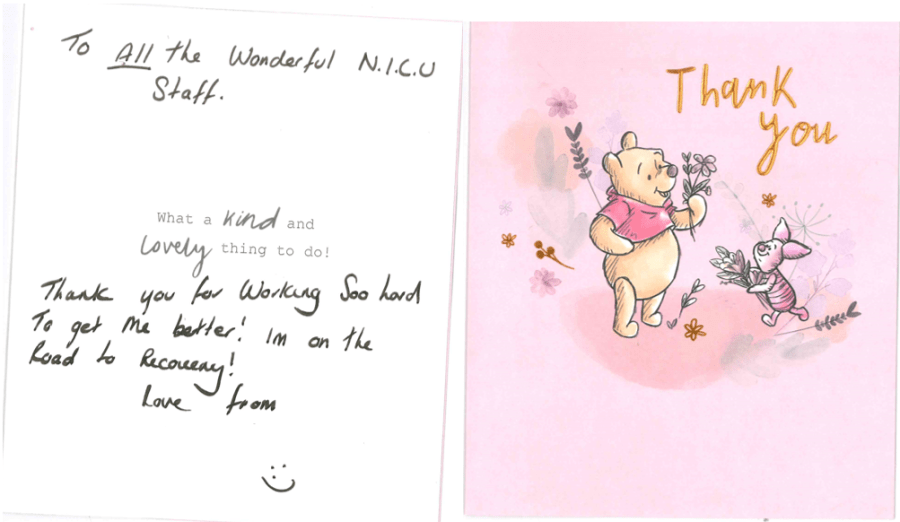 To All the Wonderful N.I.C.U
Staff.
What a kind and
lovely thing to do!
Thank you for Working Soo hard
To get Me better! Im on the
Road to Recovery!
Love from
Thank
you